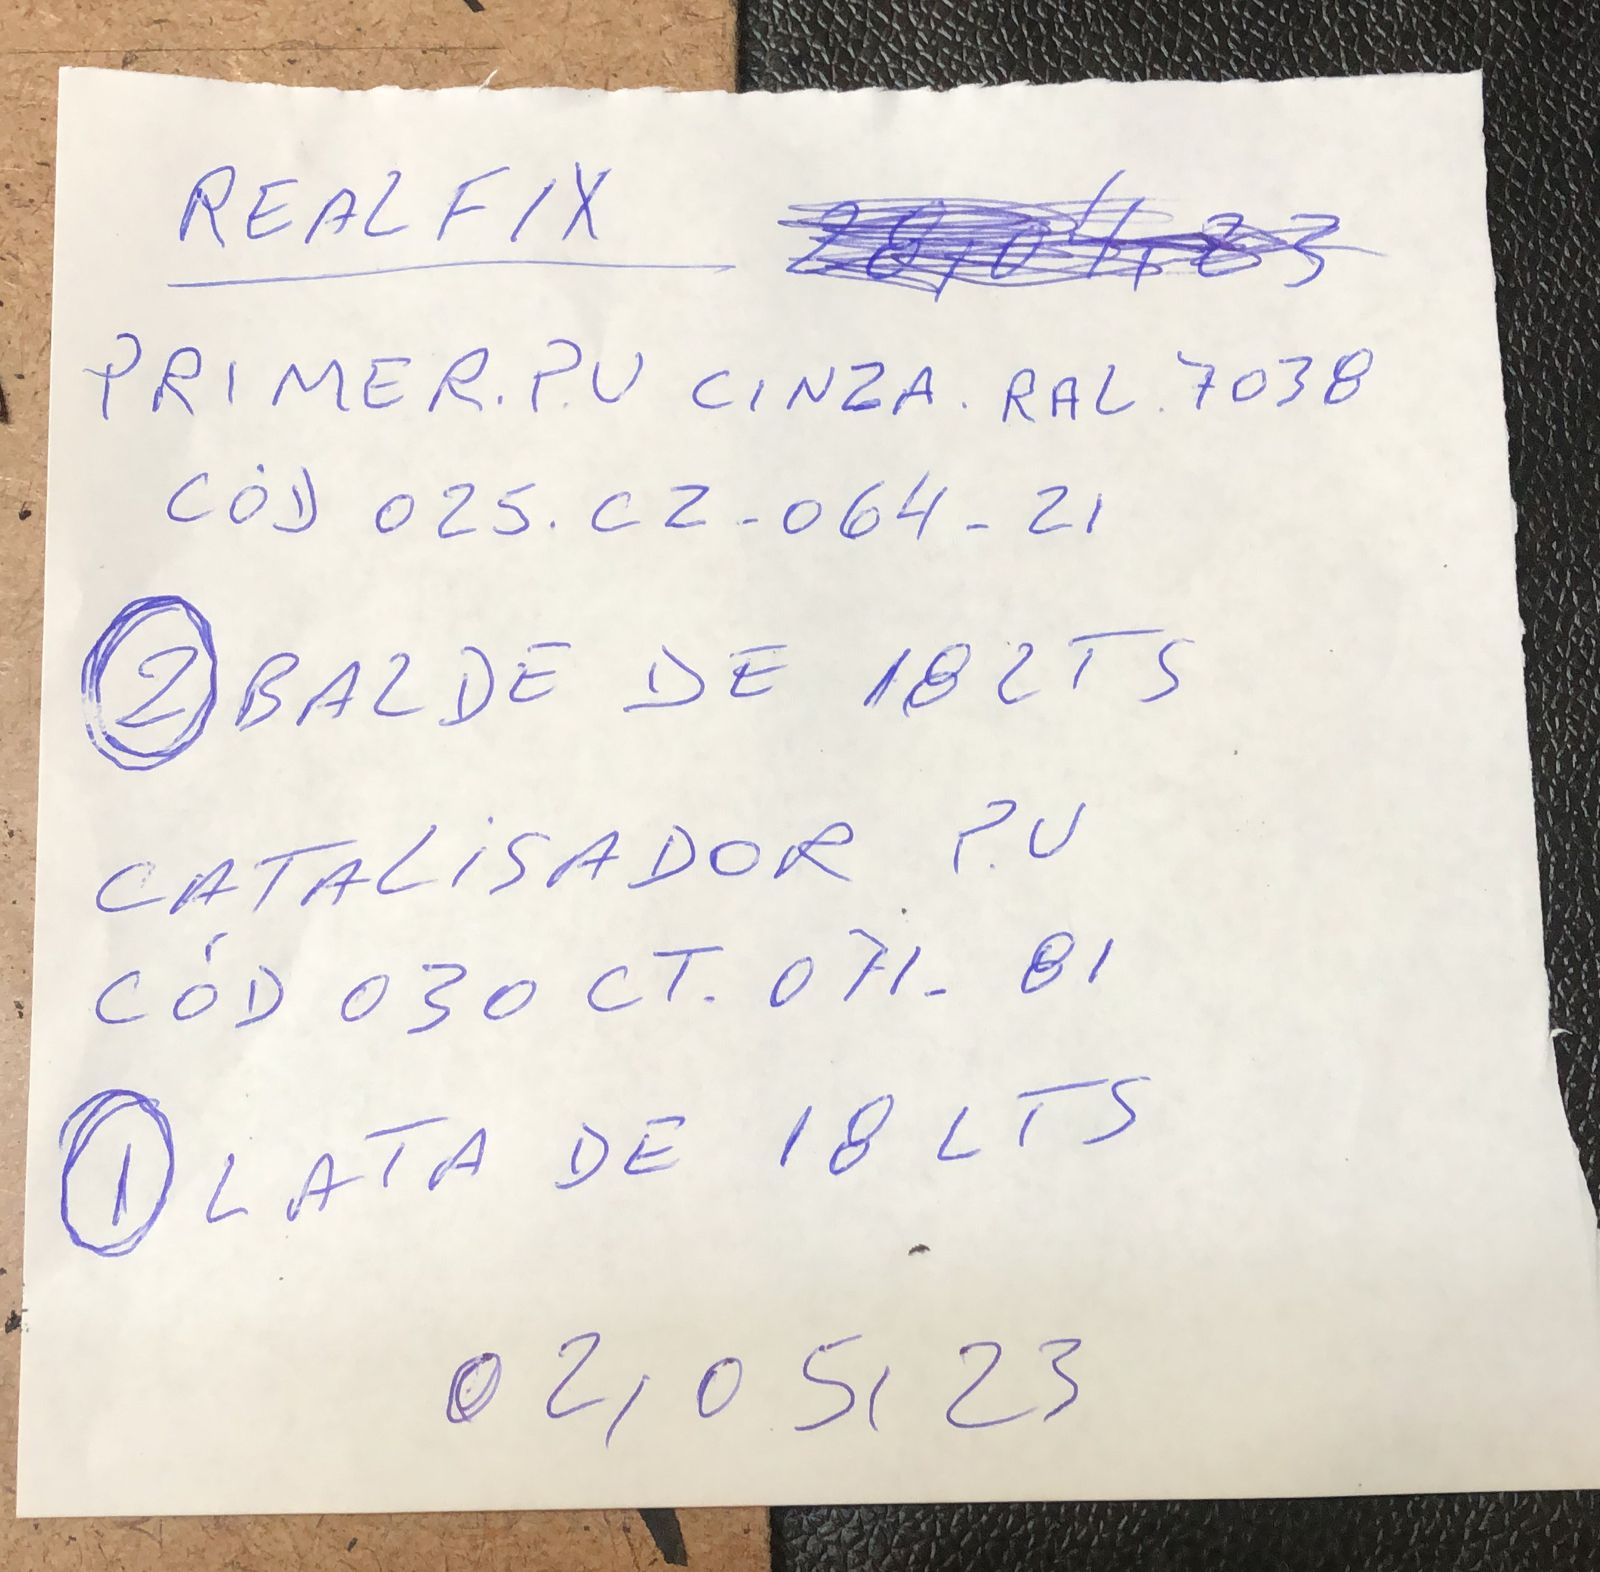 REALFIX
PRIMER.P.U CINZA. RAL.7038
CÓD 025.CZ-064-21
2 BALDE DE 18 LTS
CATALISADOR P.U
CÓD 030 CT. 071- 81
1 LATA DE 18 LTS
02,05,23